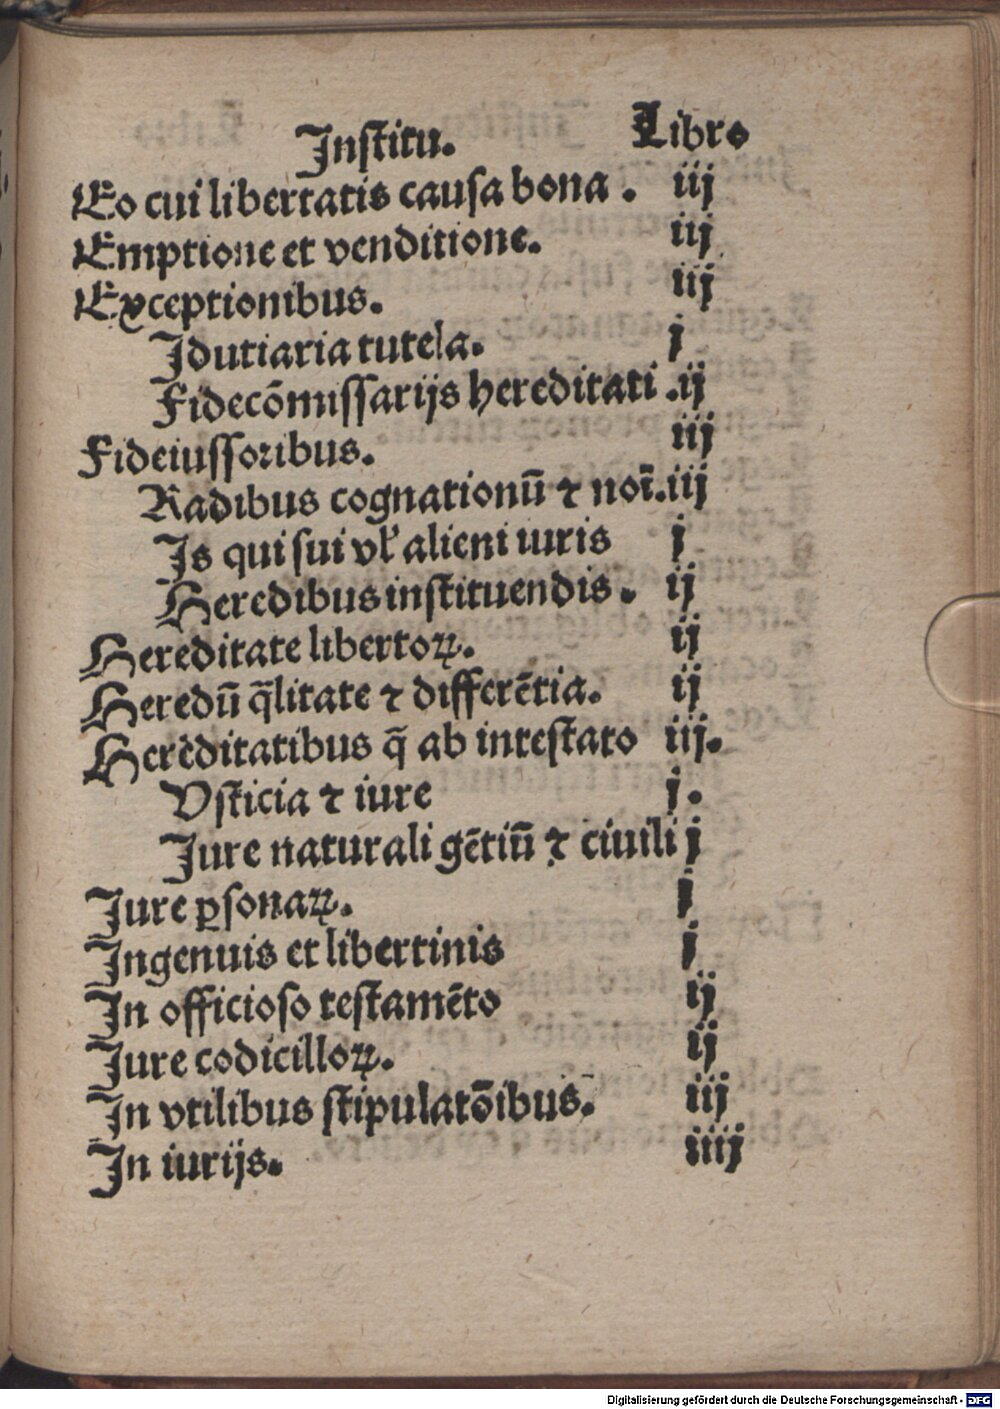 Institu. Libro
Eo cui libertatis causa bona . iij
Emptione et venditione. iij
Exceptionibus. iij
Idutiaria tutela. j
Fidecōmissarijs hereditati .ij
Fideiussoribus. iij
Radibus cognationū ⁊ noī. iij
Is qui sui vl' alieni iuris j
Heredibus instituendis. ij
Hereditate libertoꝝ. ij
Heredū q̄litate ⁊ differētia. ij
Hereditatibus q̄ ab intestato iij.
Vsticia ⁊ iure j.
Iure naturali gētiū ⁊ ciuili j
Iure ꝑsonaꝝ. j
Ingenuis et libertinis j
In officioso testamēto ij
Iure codicilloꝝ. ij
In vtilibus stipulatōibus. iij
In iurijs. iiij
Digitalisierung gefördert durch die Deutsche Forschungsgemeinschaft - DFG